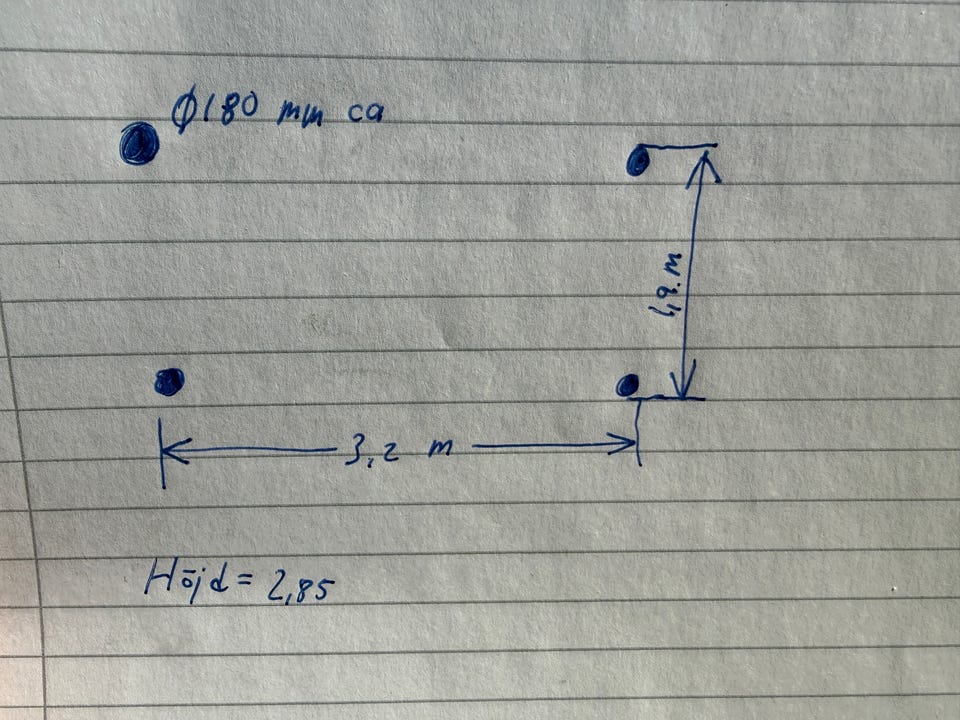 Ø180 mm ca
1,8 m
3,2 m
Höjd = 2,85